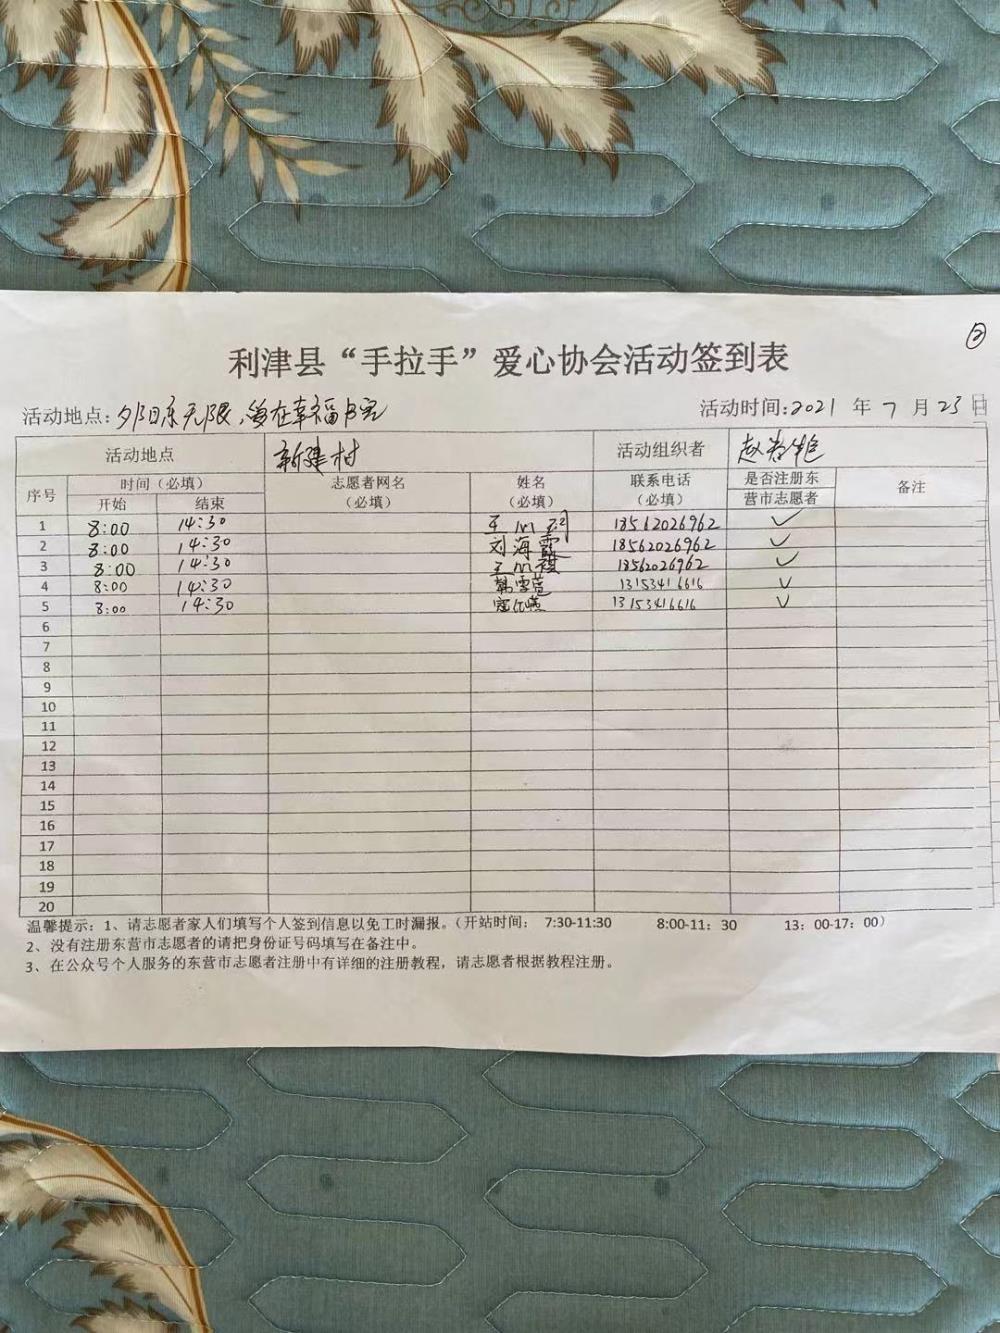 ②
利津县“手拉手”爱心协会活动签到表
活动地点:夕阳乐无限,爱在幸福 活动时间:2021 年 7 月 23 日
活动地点 新建村 活动组织者 赵
序号 时间（必填） 志愿者网名（必填） 姓名（必填） 联系电话（必填） 是否注册东营市志愿者 备注
开始 结束
1 8:00 14:30 王 18562026962 ✓
2 8:00 14:30 刘海霞 18562026962 ✓
3 8:00 14:30 王 18562026962 ✓
4 8:00 14:30 韩雪 13153416616 ✓
5 8:00 14:30 13153416616 ✓
6
7
8
9
10
11
12
13
14
15
16
17
18
19
20
温馨提示：1、请志愿者家人们填写个人签到信息以免工时漏报。（开站时间： 7:30-11:30 8:00-11：30 13：00-17：00）
2、没有注册东营市志愿者的请把身份证号码填写在备注中。
3、在公众号个人服务的东营市志愿者注册中有详细的注册教程，请志愿者根据教程注册。